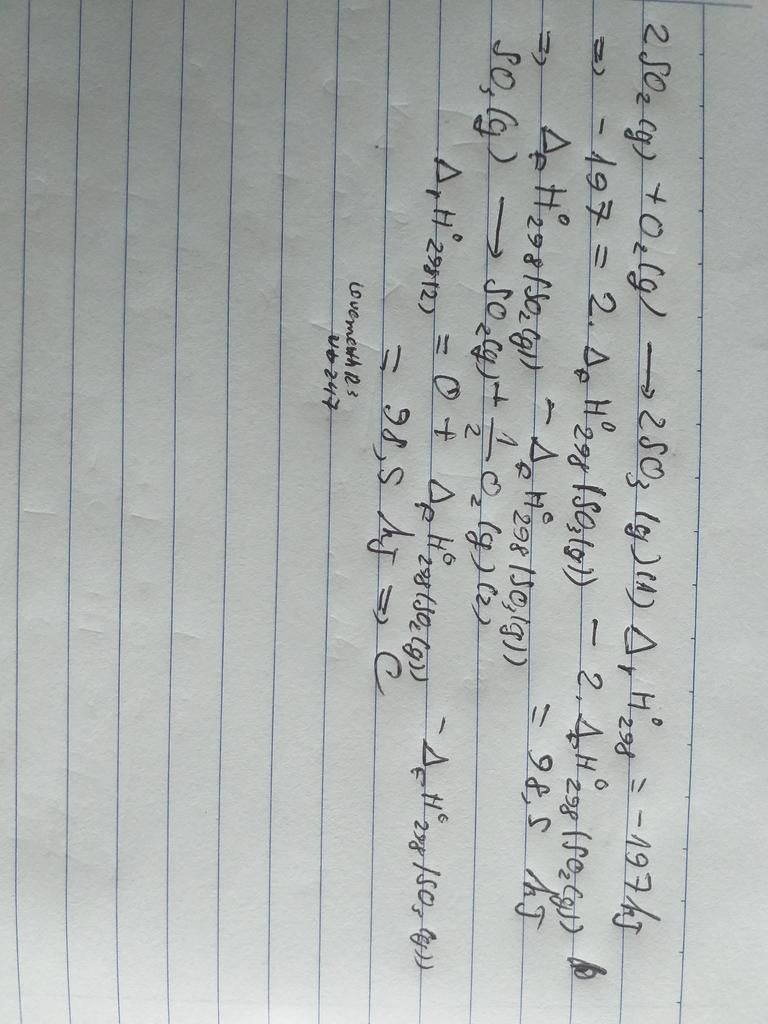 2SO₂(g) + O₂(g) → 2SO₃(g) (1) ΔᵣH°₂₉₈ = -197 kJ
⇒ -197 = 2. ΔfH°₂₉₈(SO₃(g)) - 2. ΔfH°₂₉₈(SO₂(g))
⇒ ΔfH°₂₉₈(SO₂(g)) - ΔfH°₂₉₈(SO₃(g)) = 98,5 kJ
SO₃(g) → SO₂(g) + 1/2 O₂(g) (2)
ΔᵣH°₂₉₈(2) = 0 + ΔfH°₂₉₈(SO₂(g)) - ΔfH°₂₉₈(SO₃(g))
= 98,5 kJ ⇒ C